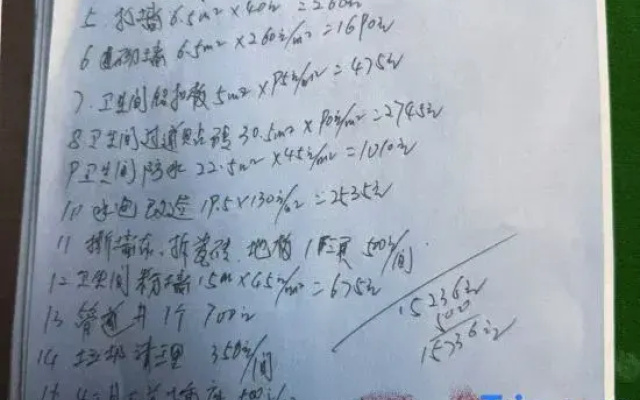 5. 拆墙 6.5m² × 40元 = 260元
6 砌墙 6.5m² × 260元/m² = 1690元
7. 卫生间铝扣板 5m² × 95元/m² = 475元
8 卫生间过道贴砖 30.5m² × 90元/m² = 2745元
9 卫生间防水 22.5m² × 45元/m² = 1010元
10 水电改造 19.5 × 130元/m² = 2535元
11 撕墙布、拆瓷砖 地 1 500元/间
12 卫生间粉墙 15m × 45元/m² = 675元
13 管道井 1个 700元
14 垃圾清理 350元/间
15236元
500
15736元